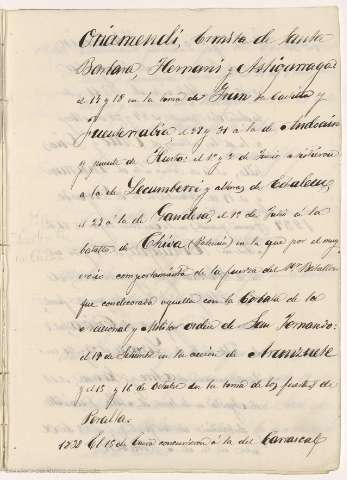 Oriamendi, Ermita de Santa
Barbara, Hernani y Astigarraga
el 17 y 18 en la toma de Irun
Fuenterrabia, el 29 y 31 a la de Andoain
y puente de : el 1º y 2 de Junio asistieron
a la de Lecumberri y alturas de
el 27 á la de Gandesa, el 1º de Julio á la
batalla de Chiva (Valencia) en la que por el
comportamiento de la fuerza del Batallon
fue condecorada aquella con la Corbata de la
Nacional y Militar orden de San Fernando:
el 14 de Setiembre en la accion de
y el 15 y 16 de Octubre en la toma de los fuertes de
Peralta.
1838 El 15 de Enero concurrieron á la del Carrascal